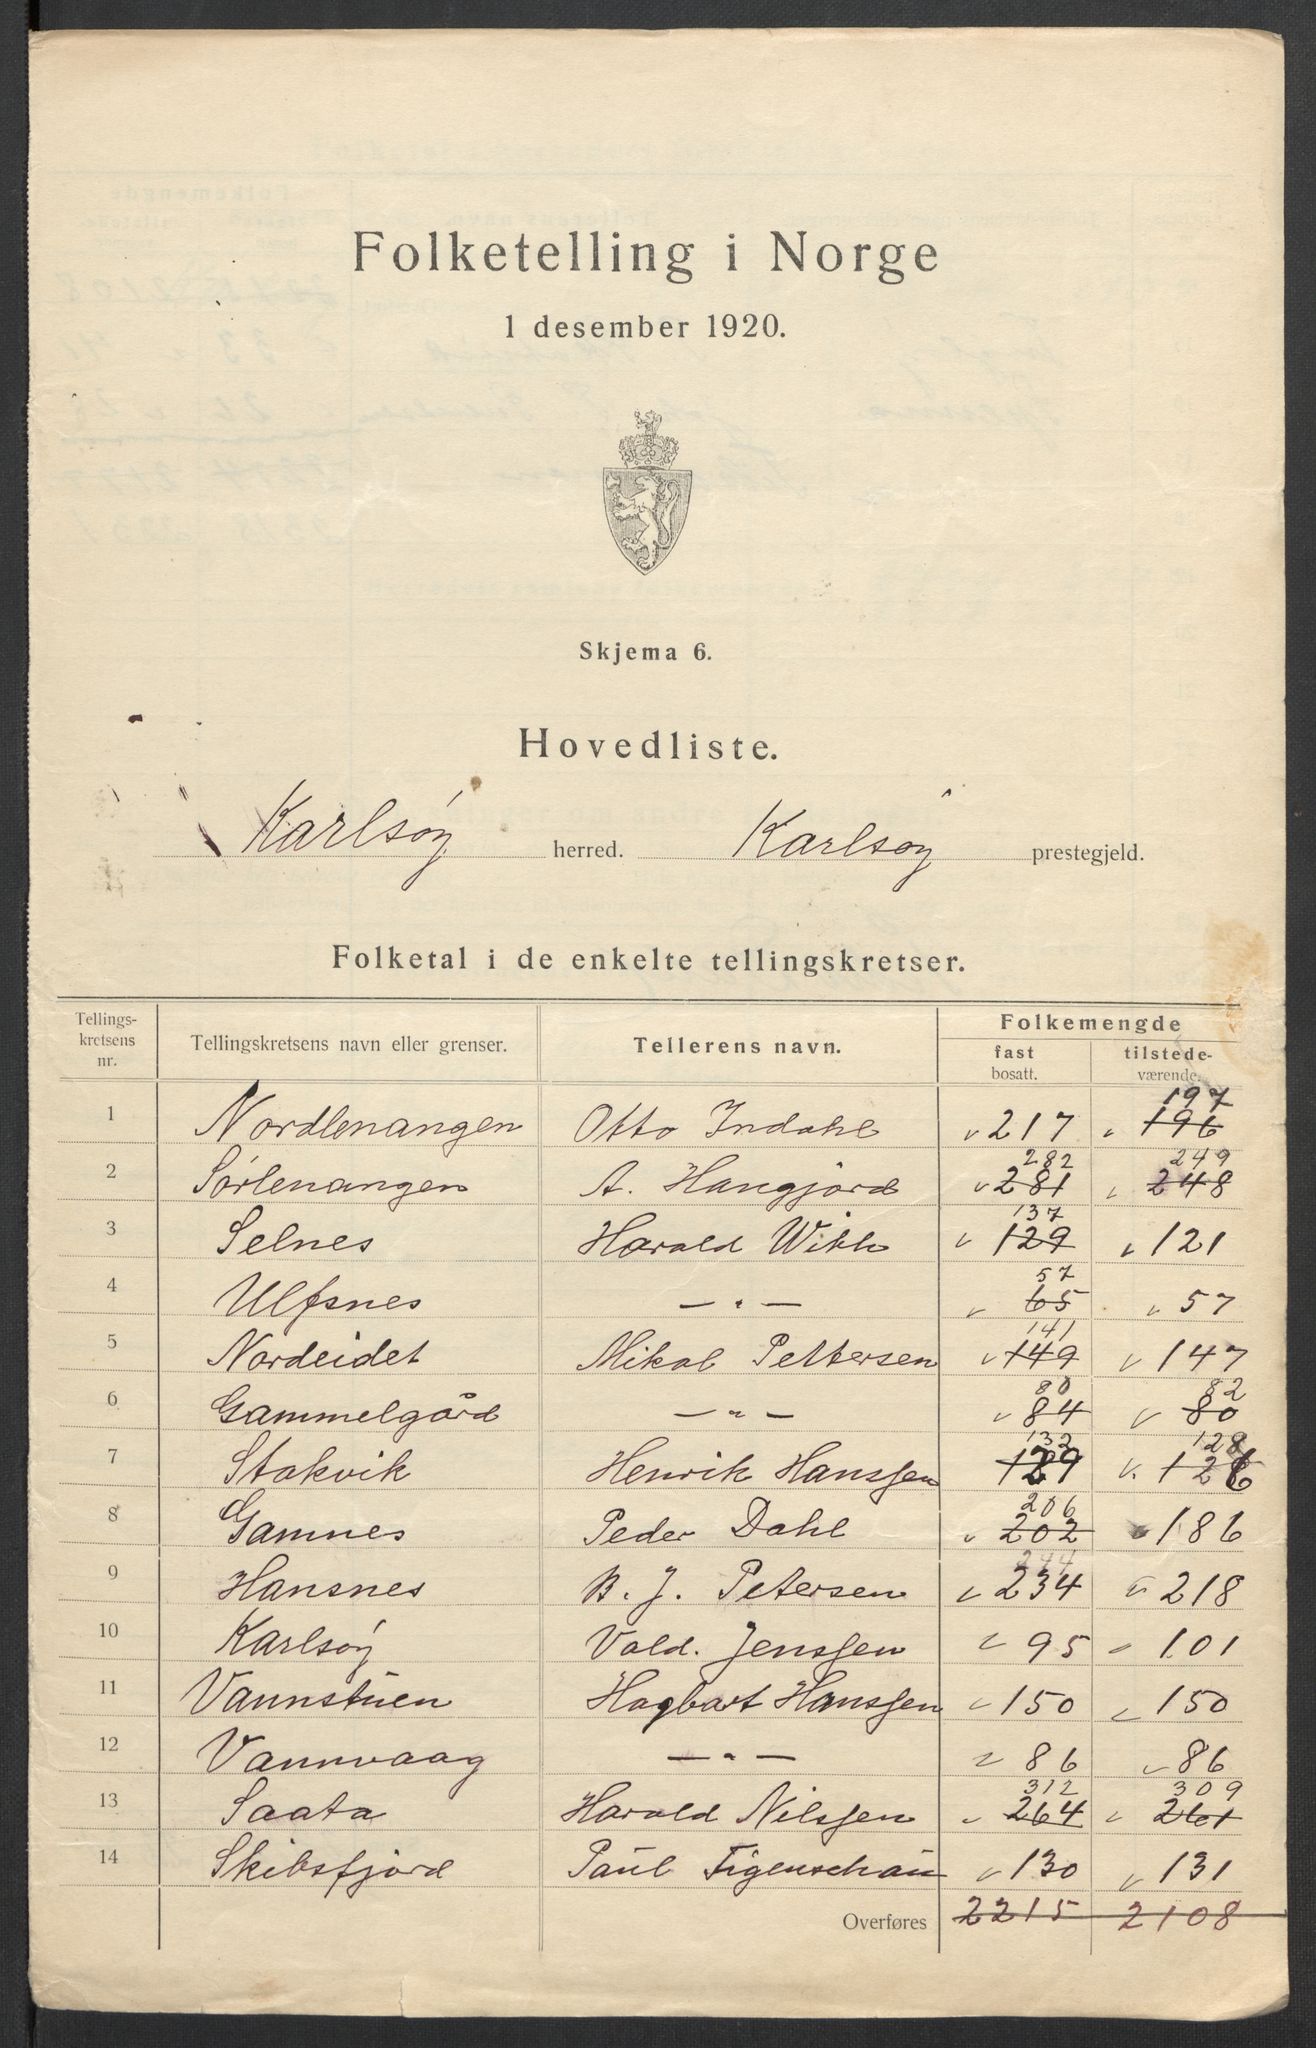 Folketelling i Norge
1 desember 1920.
Skjema 6.
Hovedliste.
Karlsøy herred. Karlsøy prestegjeld.
Folketal i de enkelte tellingskretser.
Tellings-
kretsens
nr.
Tellingskretsens navn eller grenser.
Tellerens navn.
Folkemengde
fast
bosatt.
tilstede-
værende.
197
1 Nordlenangen Otto Indahl 217 196
282 249
2 Sørlenangen A. Haugjord 281 248
137
3 Selnes Harald Wikh 129 121
57
4 Ulfsnes — „ — 65 57
141
5 Nordeidet Mikal Pettersen 149 147
80 82
6 Gammelgård — „ — 84 80
132 128
7 Stakvik Henrik Hanssen 129 126
206
8 Gamnes Peder Dahl 202 186
244
9 Hansnes B. J. Petersen 234 218
10 Karlsøy Vald. Jenssen 95 101
11 Vannstuen Hagbart Hanssen 150 150
12 Vannvaag — „ — 86 86
312 309
13 Saata Harald Nilssen 264 261
14 Skibsfjord Paul Figenschau 130 131
Overføres 2215 2108